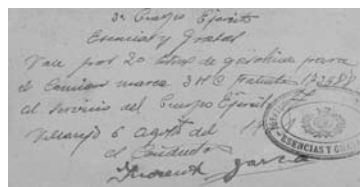 3er Cuerpo Ejército
Esencias y Grasas
Vale por 20 litros de gasolina para
el camion marca 3 H C matricula
al servicio del Cuerpo Ejército
6 agosto del
el Conductor
ESENCIAS Y GRASAS